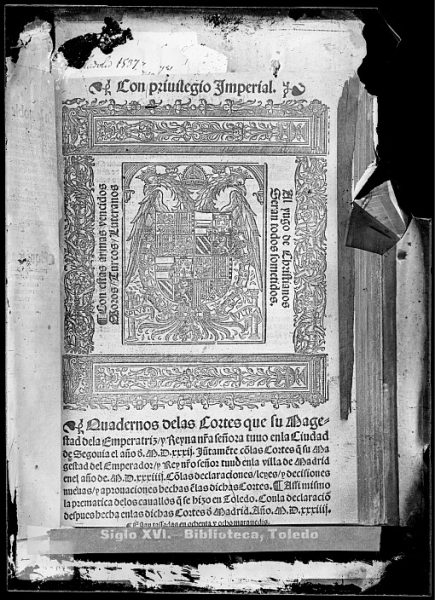 Con priuilegio Imperial.
Con estas armas vencidos
Moros/Turcos/Luteranos
Al yugo de Christianos
Seran todos sometidos.
Quadernos delas Cortes que su Mage-
stad dela Emperatris/y Reyna nr̃a señora tuuo enla Ciudad
de Segouia el año d̃. M.D.xxxij. Jũtamẽte cõlas Cortes q̃ su Ma
gestad del Emperador/y Rey nr̃o señor tuuo en la villa de Madrid
en el año de. M.D.xxxiiij. Cõlas declaraciones/leyes/y decisiones
nueuas/y aprouaciones hechas ẽlas dichas Cortes. ¶ Assi mismo
la prematica delos cauallos q̃ se hizo en Toledo. Conla declaraciõ
despues hecha enlas dichas Cortes d̃ Madrid. Año. M.D.xxxiiij.
Estan tassadas en ochenta y ocho marauedis.
Siglo XVI.- Biblioteca, Toledo